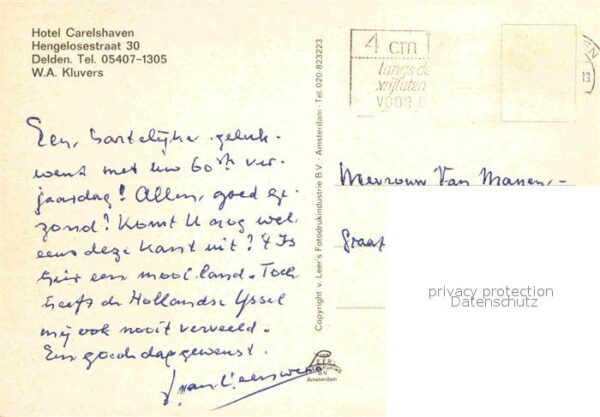 Hotel Carelshaven
Hengelosestraat 30
Delden. Tel. 05407-1305
W.A. Kluvers
Een hartelijke geluk-
wens met uw 60ste ver-
jaardag! Alles goed ge-
zond? Komt U nog wel
eens deze kant uit? 't Is
hier een mooi land. Toch
heeft de Hollandse IJssel
mij ook nooit verveeld.
Een goede dag gewenst.
Copyright v. Leer's Fotodrukindustrie B.V. - Amsterdam - Tel. 020-823223
LEER
B.V
Amsterdam
4 cm
langs de
vrijlaten
VOOR
Mevrouw Van Manen,-
Graaf
privacy protection
Datenschutz